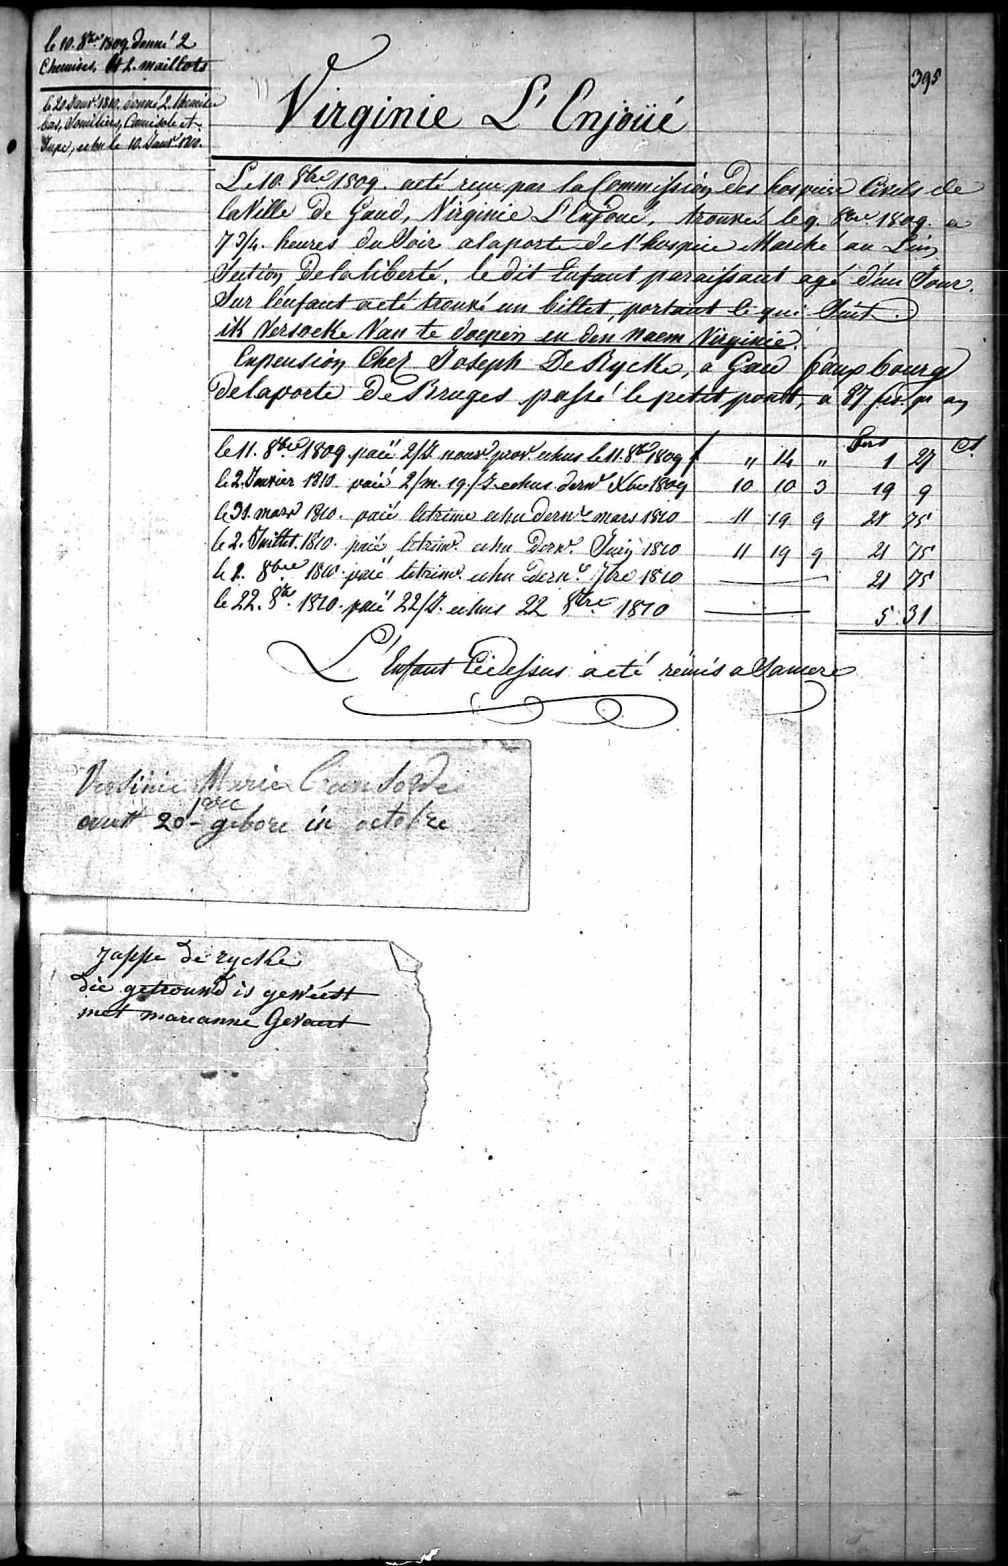 le 10. 8bre 1809. donné 2
Chemises, et 2. maillots
le 20 Janvr 1810. donné 2. Chemises
bas, Souliers, Camisole et
Jupe, echu le 10. Janvr 1810.
395
Virginie L'Enjoüé
Le 10. 8bre 1809. a eté reçu par la Commission des hospices Civils de
la Ville de Gand, Virginie L'Enjoué, trouvé le 9. 8bre 1809. a
7 3/4. heures du Soir a la porte de l'hospice Marché au Lin,
Section de la liberté. le dit Enfant paraissant agé d'un Jour.
Sur l'enfant a eté trouvé un billet, portant ce qui Suit.
ik versocke van te doepen en den naem Virginie.
En pension Chez Joseph De Rycke, a Gand fauxbourg
de la porte De Bruges passé le petit pont, a 87 frs. pr an
frs Ct.
le 11. 8bre 1809. paié 2/J. nourr prov. echus le 11. 8bre 1809 " 14 " 1 27
le 2. Janvier 1810. paié 2/m. 19./J. echus dernr Xbre 1809 10 10 3 19 9
le 31. mars 1810. paié le trime echu dernr mars 1810 11 19 9 21 75
le 2. Juillet. 1810. paié le trimr. echu dernr. Juin 1810 11 19 9 21 75
le 2. 8bre 1810. paié le trimr. echu dernr. 7bre 1810 21 75
le 22. 8bre. 1810. paié 22/J. echus 22 8bre 1810 5 31
L'Enfant Cidessus a eté remis a Sa mere
Marie
20 gebore in octobre
Jappe de rycke
die getrouwd is geweest
met marianne Gevaert